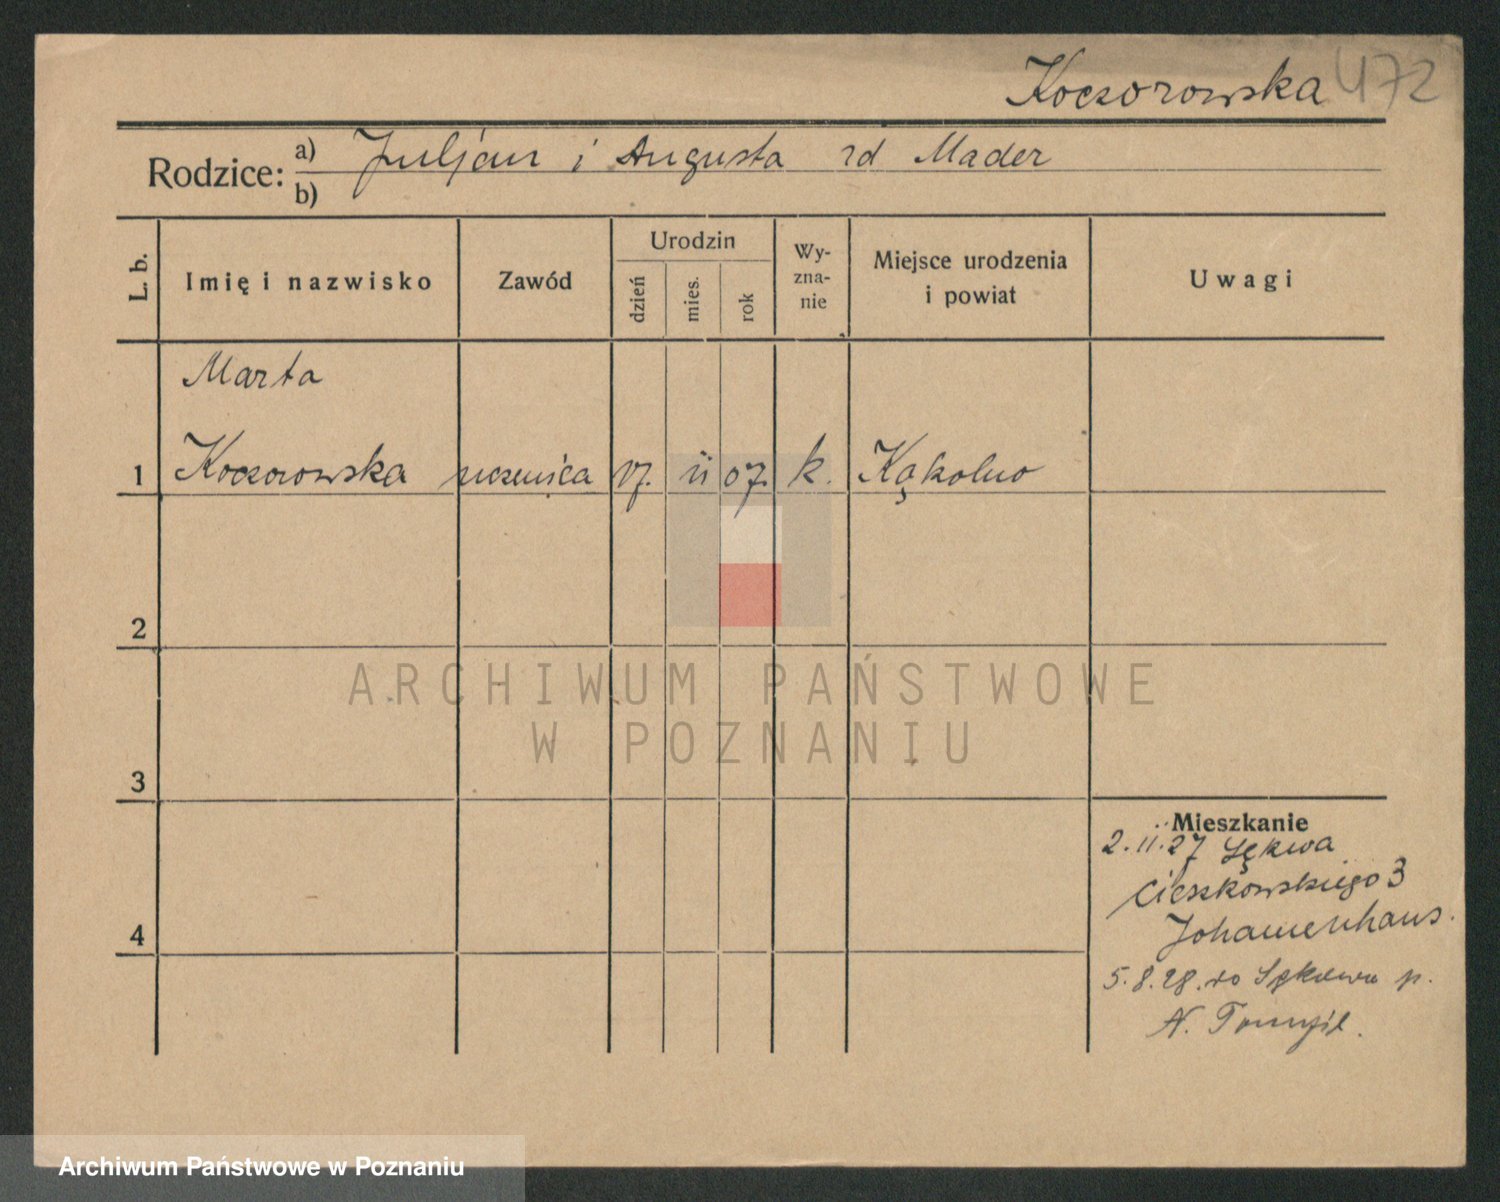 Koczorowska 472
Rodzice: a) Juljan i Augusta zd Mader
b)
L. b. Imię i nazwisko Zawód Urodzin dzień mies. rok Wy-zna-nie Miejsce urodzenia i powiat Uwagi
Marta
1 Koczorowska uczenica 17. ii 07. k. Kąkolno
2
ARCHIWUM PAŃSTWOWE
W POZNANIU
3
Mieszkanie
2.ii.27 Sękwa
Cieszkowskiego 3
4
Johannenhaus.
5.8.28. do p.
N. Tomyśl.
Archiwum Państwowe w Poznaniu